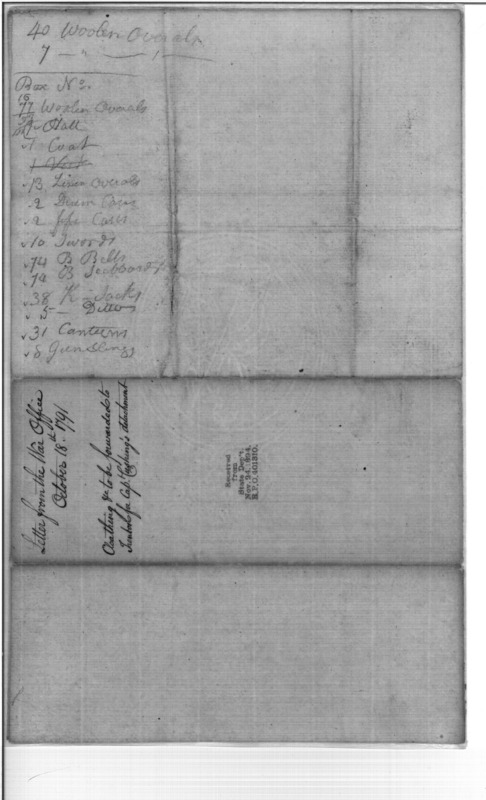 40 Woolin Overals
7 — " — 1 —
Box No.
16
77 Woolin Overals
Hatt
1 Coat
13 Linen Overals
2 Drum Cases
2 fife Cases
10 Swords
74 B Belts
74 B Scabboards
38 K-Sacks
5 — Ditto
31 Canteens
8 Gunslings
Letter from the War Office
October 18th 1791
Cloathing &c to be forwarded to
Capt. Cushing's detachment
Received
from
State Dep't.
Nov. 24, 1894.
R.P.O. 401310.